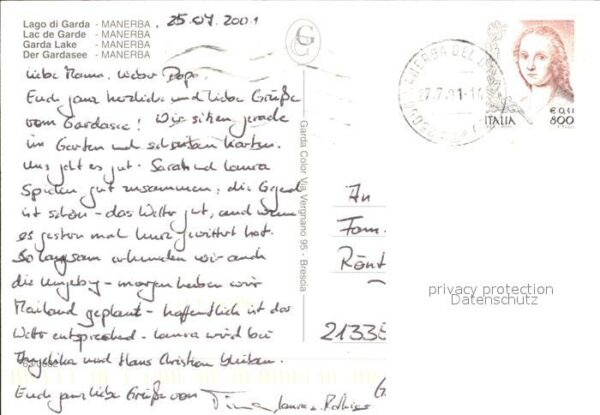 Lago di Garda - MANERBA
Lac de Garde - MANERBA
Garda Lake - MANERBA
Der Gardasee - MANERBA
25.07.2001
Liebe Mama, lieber Papa,
Euch ganz herzliche und liebe Grüße
vom Gardasee! Wir sitzen gerade
im Garten und schreiben Karten.
Uns geht es gut - Sarah und Laura
spielen gut zusammen, die Gegend
ist schön - das Wetter gut, auch wenn
es gestern mal kurz gewittert hat.
So langsam erkunden wir auch
die Umgebung - morgen haben wir
Mailand geplant - hoffentlich ist das
Wetter entsprechend - Laura wird bei
Angelika und Hans Christian bleiben.
Euch ganz liebe Grüße von
Laura
Garda Color Via Vergnano 95 - Brescia
27.7.01-1
€ 0,41
ITALIA 800
An
Fam.
Rönt
21335
G
privacy protection
Datenschutz